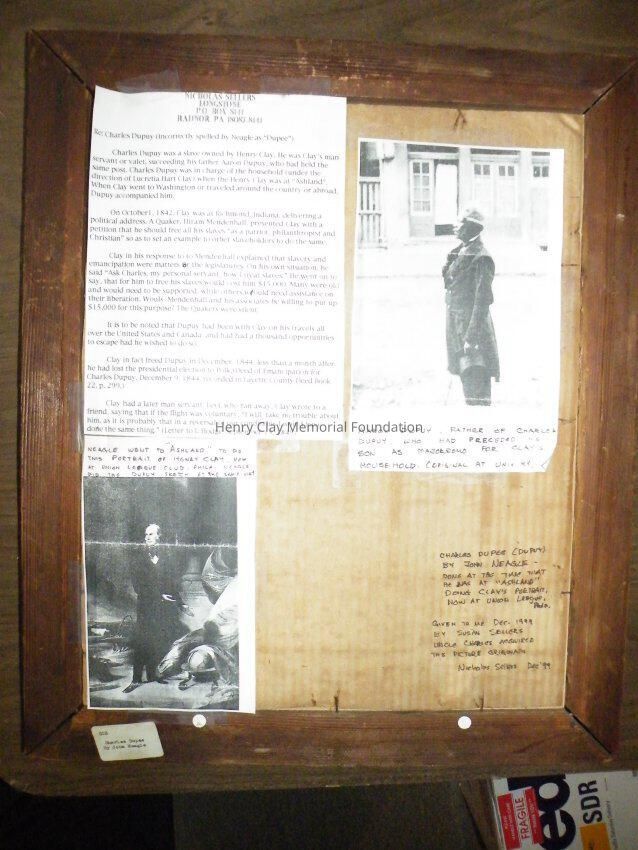 NICHOLAS SELLERS
LONGSTONE
P.O. BOX
RADNOR PA
Re: Charles Dupuy (incorrectly spelled by Neagle as "Dupee")
Charles Dupuy was a slave owned by Henry Clay. He was Clay's man
servant or valet, succeeding his father Aaron Dupuy, who had held the
same post. Charles Dupuy was in charge of the household (under the
direction of Lucretia Hart Clay) when the Henry Clay was at "Ashland".
When Clay went to Washington or traveled around the country or abroad,
Dupuy accompanied him.
On October1, 1842, Clay was at Richmond, Indiana, delivering a
political address. A Quaker, Hiram Mendenhall, presented Clay with a
petition that he should free all his slaves "as a patriot, philanthropist and
Christian" so as to set an example to other slaveholders to do the same.
Clay in his response to to Mendenhall explained that slavery and
emancipation were matters for the legislatures. On his own situation, he
said "Ask Charles, my personal servant, how I treat slaves." He went on to
say, that for him to free his slaves would cost him $15,000. Many were old
and would need to be supported, while others would need assistance on
their liberation. Would Mendenhall and his associates be willing to put up
$15,000 for this purpose? The Quakers were silent.
It is to be noted that Dupuy had been with Clay on his travels all
over the United States and Canada, and had had a thousand opportunities
to escape had he wished to do so.
Clay in fact freed Dupuy in December, 1844, less than a month after
he had lost the presidential election to Polk (Deed of Emancipation for
Charles Dupuy, December 9, 1844, recorded in Fayette County Deed Book
22, p. 299.)
Clay had a later man servant, Levi, who ran away. Clay wrote to a
friend, saying that if the flight was voluntary, "I will take no trouble about
him, as it is probable that in a reversal
done the same thing." (Letter to
Henry Clay Memorial Foundation
DUPUY FATHER OF CHARLES
DUPUY WHO HAD PRECEDED HIS
SON AS MAJORDOMO FOR CLAY'S
HOUSEHOLD. (ORIGINAL AT UNIV. KY.)
NEAGLE WENT TO "ASHLAND" TO DO
THIS PORTRAIT OF HENRY CLAY NOW
AT UNION LEAGUE CLUB, PHILA. NEAGLE
DID THE DUPUY SKETCH AT THE SAME
CHARLES DUPEE (DUPUY)
BY JOHN NEAGLE -
DONE AT THE TIME THAT
HE WAS AT "ASHLAND"
DOING CLAY'S PORTRAIT,
NOW AT UNION LEAGUE,
Phila.
GIVEN TO ME DEC. 1999
BY SUSAN SELLERS
UNCLE CHARLES ACQUIRED
THIS PICTURE ORIGINALLY
Nicholas Sellers Dec '99
Charles Dupee
By John Neagle
FRAGILE
ed
SDR